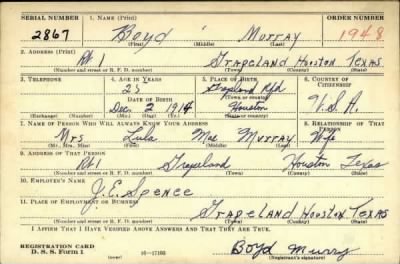 SERIAL NUMBER 1. NAME (Print) ORDER NUMBER
2867 Boyd Murray 1948
(First) (Middle) (Last)
2. ADDRESS (Print)
Rt 1 Grapeland Houston Texas
(Number and street or R. F. D. number) (Town) (County) (State)
3. TELEPHONE 4. AGE IN YEARS 5. PLACE OF BIRTH 6. COUNTRY OF CITIZENSHIP
25 Grapeland Rfd
DATE OF BIRTH (Town or county)
Dec. 2 1914 Houston U.S.A.
(Exchange) (Number) (Mo.) (Day) (Yr.) (State or country)
7. NAME OF PERSON WHO WILL ALWAYS KNOW YOUR ADDRESS 8. RELATIONSHIP OF THAT PERSON
Mrs Lula Mae Murray Wife
(Mr., Mrs., Miss) (First) (Middle) (Last)
9. ADDRESS OF THAT PERSON
Rt 1 Grapeland Houston Texas
(Number and street or R. F. D. number) (Town) (County) (State)
10. EMPLOYER'S NAME
J. E. Spence
11. PLACE OF EMPLOYMENT OR BUSINESS
Grapeland Houston Texas
(Number and street or R. F. D. number) (Town) (County) (State)
I AFFIRM THAT I HAVE VERIFIED ABOVE ANSWERS AND THAT THEY ARE TRUE.
REGISTRATION CARD
D. S. S. Form 1 16-17105 Boyd Murry
(Registrant's signature)